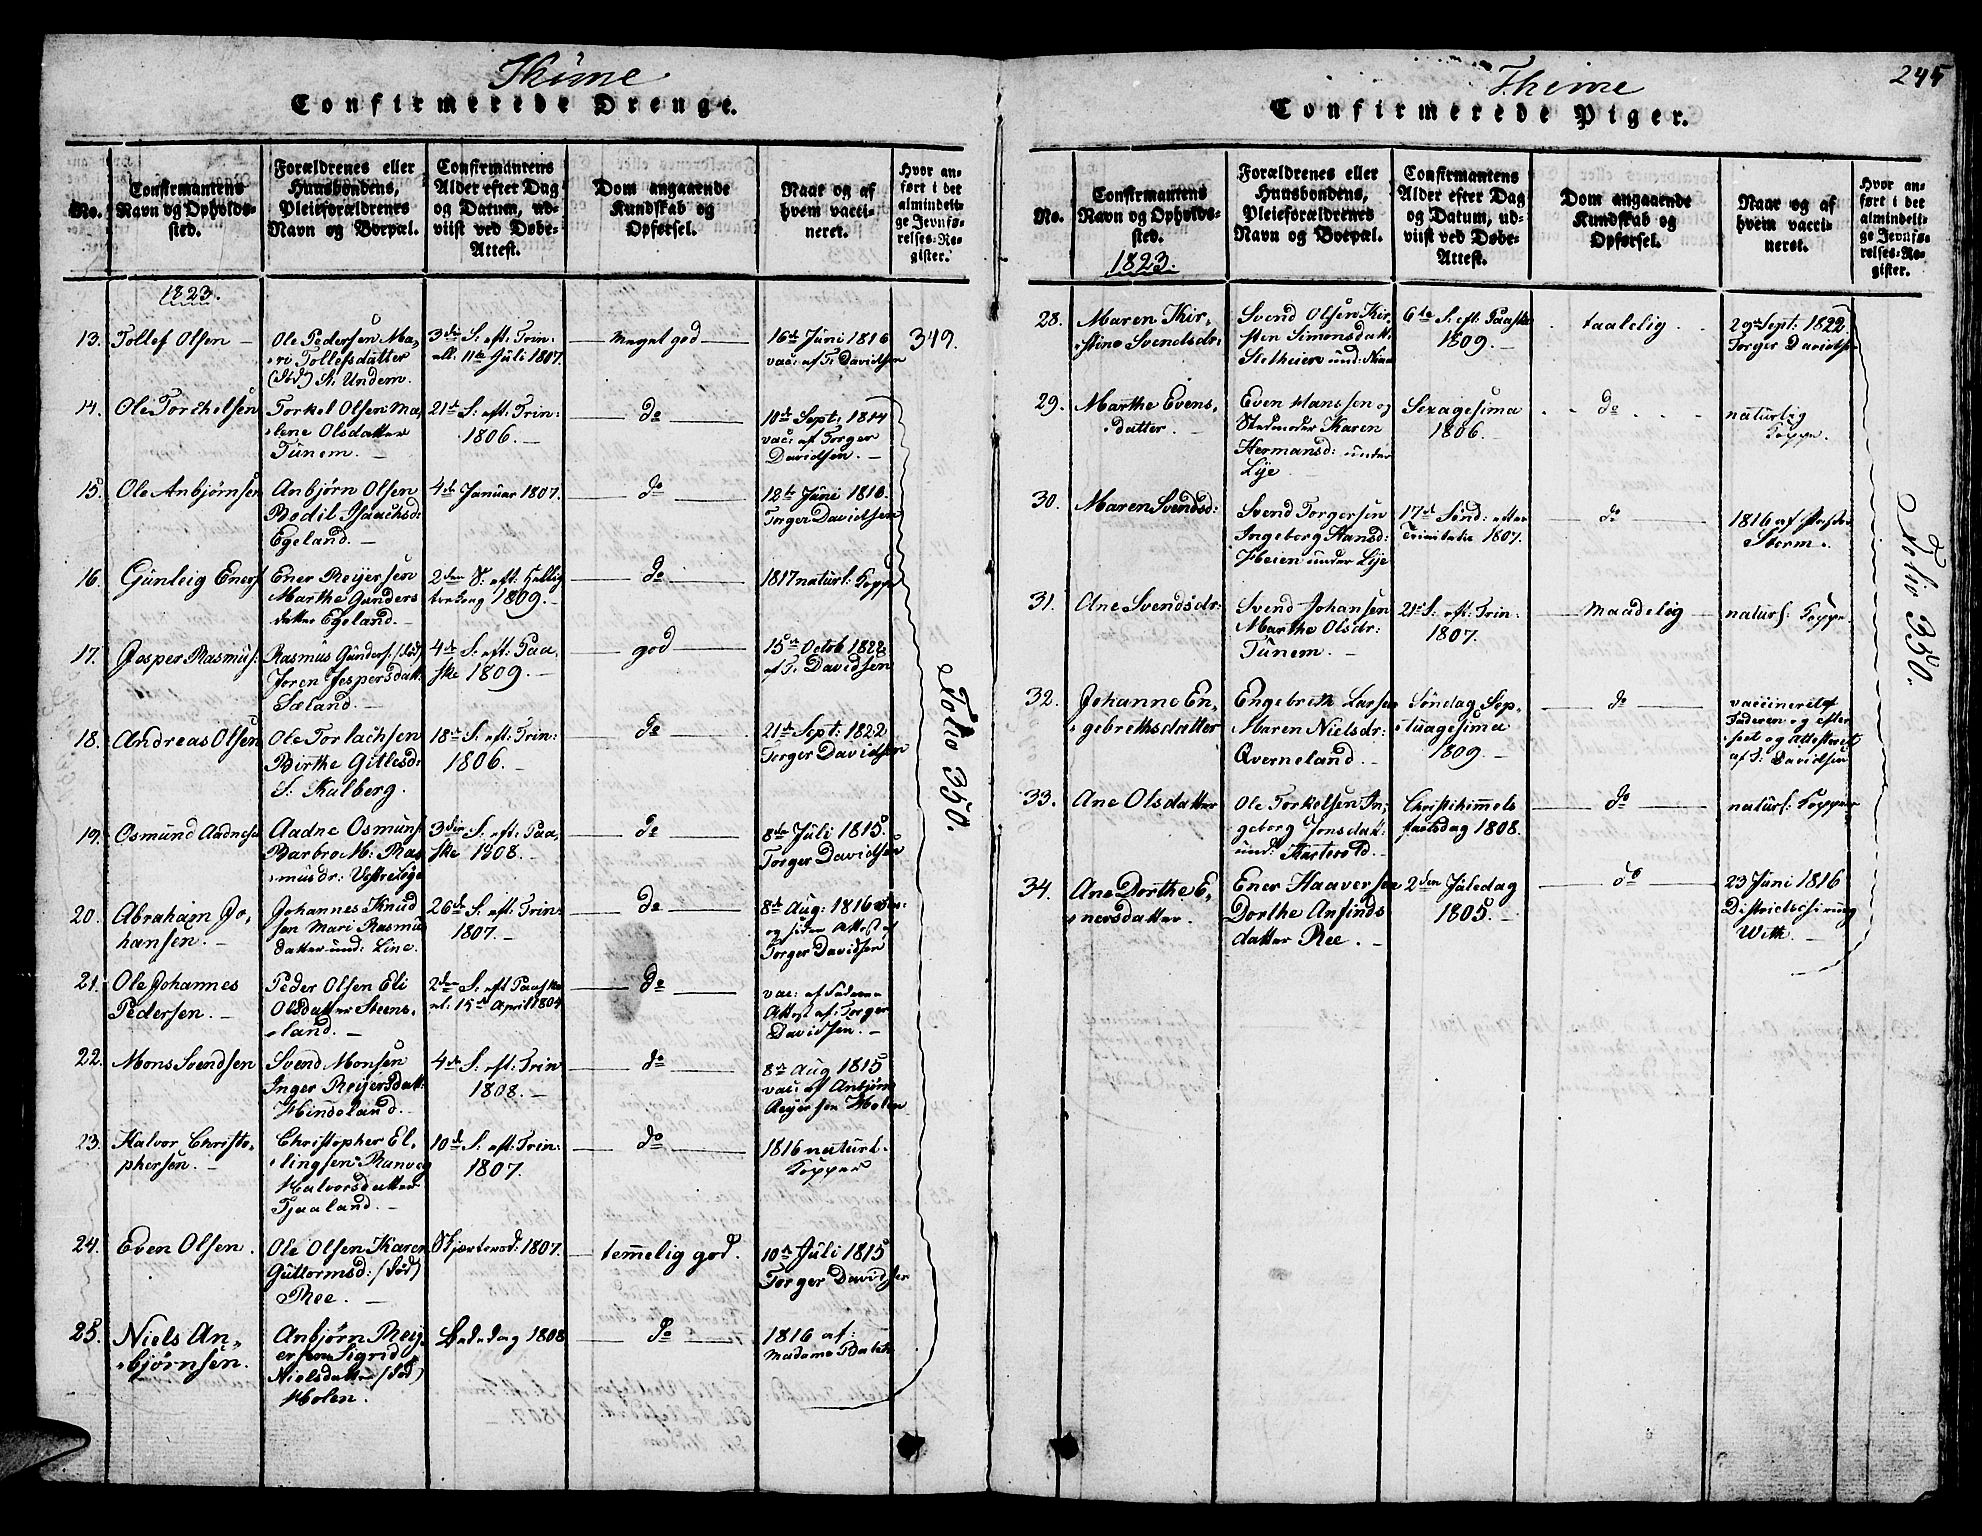 Thime
Confirmerede Drenge.
No.
Confirmantens
Navn og Opholds-
sted.
Forældrenes eller
Huusbondens,
Pleieforældrenes
Navn og Boepæl.
Confirmantens
Alder efter Dag
og Datum, ud-
viist ved Døbe-
Attest.
Dom angaaende
Kundskab og
Opførsel.
Naar og af
hvem vacci-
neret.
Hvor an-
ført i det
almindeli-
ge Jevnfø-
relses-Re-
gister.
1823.
13. Tollef Olsen
Ole Pedersen Ma-
ri Tollefsdatter
(død) St: Undem.
3die S. eft: Trin:
ell. 11te Juli 1807.
Meget god
16de Juni 1816
vac: af T: Davidsen
349.
14. Ole Torchelsen
Torkel Olsen Ma-
lene Olsdatter
Tunem.
21de S: eft: Trin:
1806.
do
10de Sept: 1814
vac: af Torger
Davidsen.
15. Ole Anbjørnsen
Anbjørn Olsen
Bodil Isaachsd:
Egeland.
4de Januar 1807.
do
12te Juni 1810
Torger Davidsen
16. Gunleig Eners
Ener Reijersen
Marthe Gunders
datter Egeland.
2den S: eft: Hellig
tre Kong 1809.
do
1817 naturl: Kopper
17. Jesper Rasmus:
Rasmus Gunders: (død)
Joren Jespersdatt:
Sæland.
4de S: eft: Paa-
ske 1809.
god
15de Octob 1822
af T: Davidsen
18. Andreas Olsen
Ole Torlachsen
Birthe Gitlesd:
S: Kalberg.
18de S: eft: Trin:
1806.
do
21de Sept: 1822
Torger Davidsen
19. Osmund Aadnesen
Aadne Osmuns:
Barbro M: Ras
musdr: Vestrelye
3die S: eft: Paa-
ske 1808.
do
8de Juli 1815.
Torger Davidsen
20. Abraham Jo-
hansen.
Johannes Knud
sen Mari Rasmus
datter und: Line.
26de S: eft: Trin:
1807.
do
8de Aug: 1816
og siden Attest af
Torger Davidsen
21. Ole Johannes
Pedersen.
Peder Olsen Eli
Olsdatter Steens-
land.
2den S: eft Paaske
el: 15de April 1804
do
vac: af Faderen
Attest af: Torger
Davidsen.
22. Mons Svendsen
Svend Monsen
Inger Reijersdatt:
Hindeland.
4de S: eft: Trin
1808.
do
8de Aug 1815
vac: af Anbjørn
Reijersen Holen
23. Halvor Christo-
phersen.
Christopher El-
lingsen Ranveg
Halvorsdatter
Tjaaland.
10de S: eft: Trin:
1807.
do
1816 naturl.
Kopper
24. Even Olsen.
Ole Olsen Karen
Guttormsd: (død)
Ree.
Skjærtorsd: 1807.
temmelig god.
10de Juli 1815
Torger Davidsen
25. Niels An-
bjørnsen.
Anbjørn Reij
ersen Sigrid
Nielsdatter (død)
Holen.
Bededag 1808
do
1816 af:
Madame Balch
Folio 350.
Thime
245
Confirmerede Piger.
No.
Confirmantens
Navn og Opholds-
sted.
1823.
Forældrenes eller
Huusbondens,
Pleieforældrenes
Navn og Boepæl.
Confirmantens
Alder efter Dag
og Datum, ud-
viist ved Døbe-
Attest.
Dom angaaende
Kundskab og
Opførsel.
Naar og af
hvem vacci-
neret.
Hvor an-
ført i det
almindeli-
ge Jevnfø-
relses-Re-
gister.
28. Maren Kir-
stine Svendsdr:
Svend Olsen Kir
sten Simonsdatt
Stelheien und:
6te S: eft: Paaske
1809.
taalelig
29de Sept: 1822
Torger Davidsen
29. Marthe Evens-
datter.
Even Hanssen og
Stedmoder Karen
Hermansd: under
Lye
Sexagesima
1806.
do
naturlig
Koppe.
30. Maren Svendsd:
Svend Torgersen
Ingeborg Hansd:
Heien under Lye
17de Sønd: efter
Trinitatis 1807.
do
1816 af
Storm.
31. Ane Svendsdr:
Svend Johansen
Marthe Olsdr:
Tunem.
21de S: eft: Trin:
1807.
Maadelig
naturl: Koppe.
32. Johanne En-
gebrethsdatter
Engebreth Larsen
Maren Nielsdr:
Qverneland.
Søndag Sep-
tuagesima
1809.
do
vaccineret af
Faderen og efter-
seet og Attesteret
af T: Davidsen
33. Ane Olsdatter
Ole Torkelsen In-
geborg Jonsdatt:
und:
Christihimmels
fartsdag 1808.
do
naturl: Kopper
34. Ane Dorthe E-
nersdatter.
Ener Haaversen
Dorthe Anfinds
datter Ree.
2den Juledag
1805.
do
23 Juni 1816
Districtschirurg
With.
Folio 350.